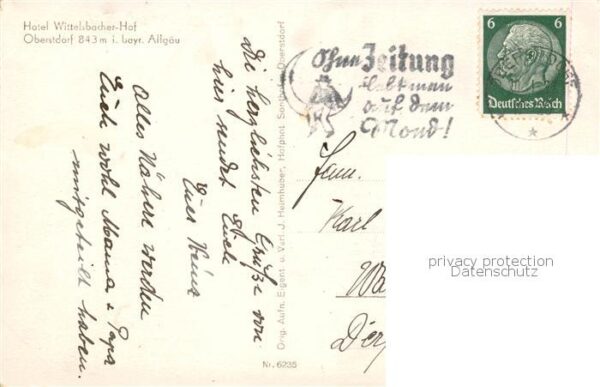 Hotel Wittelsbacher-Hof
Oberstdorf 843 m i. bayr. Allgäu
Die herzlichsten Grüße von
hier sendet Euch
Euer Heinz
Alles Nähere werden
Euch wohl Mama & Papa
mitgeteilt haben.
Orig. Aufn. Eigent. u. Verl. J. Heimhuber, Hofphot. Sonthofen-Oberstdorf
Nr. 6235
Ohne Zeitung
lebt man
auf dem
Mond!
6 6
Deutsches Reich
Fam.
Karl
privacy protection
Datenschutz